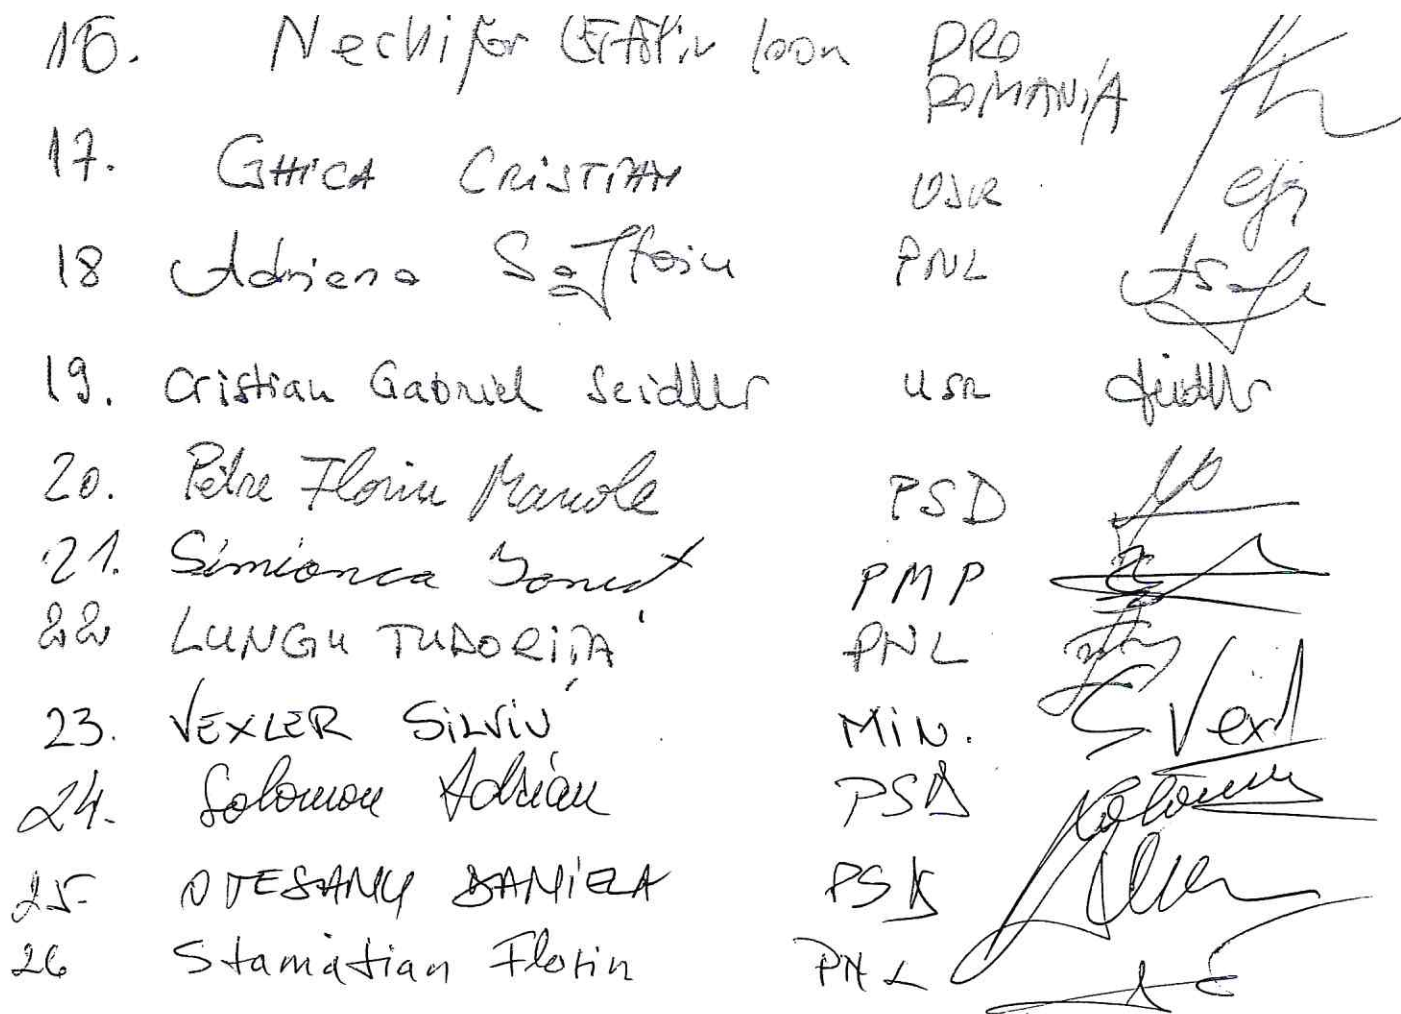 16. Nechifor Cătălin Ioan PRO
ROMANIA
17. GHICA CRISTIAN USR
18 Adriana Săftoiu PNL
19. Cristian Gabriel Seidler USR Seidler
20. Petre Florin Manole PSD
21. Simionca Ionuț PMP
22 LUNGU TUDORIȚA PNL
23. VEXLER SILVIU MIN. S Vexl
24. Solomon Adrian PSD Solomon
25- OTESANU DANIELA PSD
26 Stamatian Florin PNL